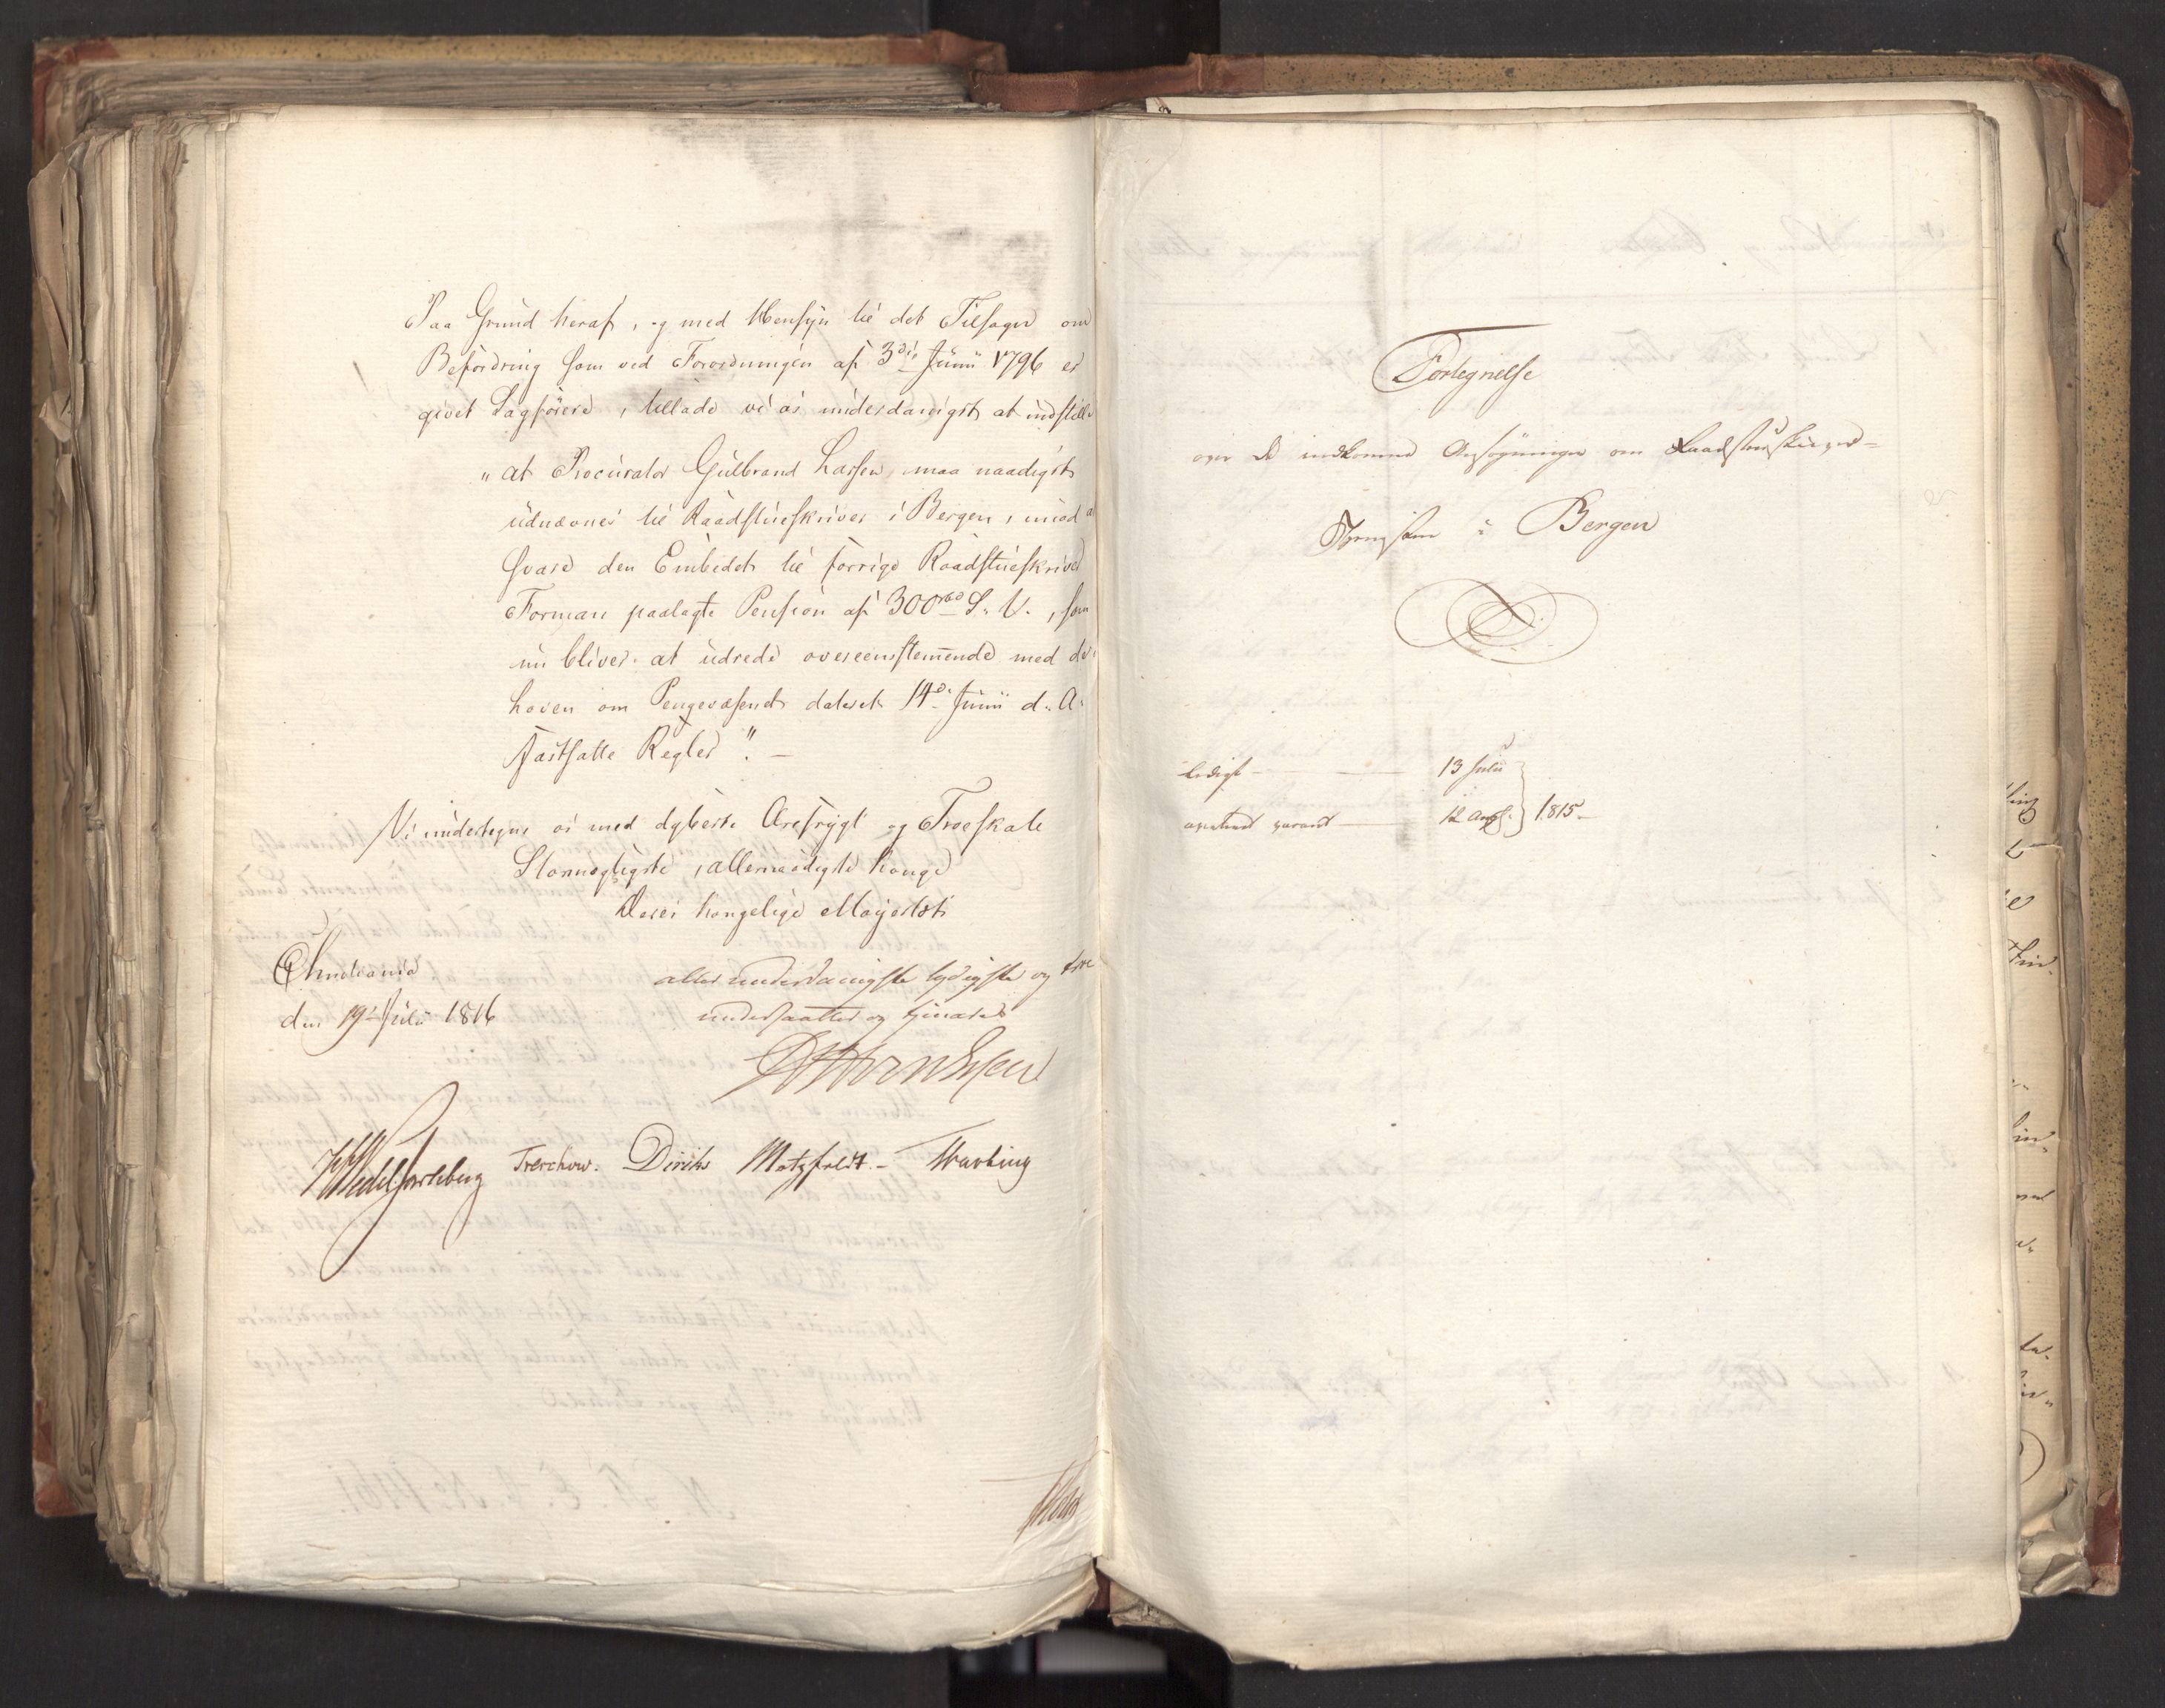 Paa Grund heraf, og med Hensyn til det Tilsagn om
Befordring som ved Forordningen af 3die Junii 1796 er
givet Sagförere, tillade vi os underdanigst at indstille
„at Procurator Gulbrand Larsen, maa naadigst
udnævnes til Raadstueskriver i Bergen, imod at
svare den Embedet til forrige Raadstueskriver
Forman paalagte Pension af 300 rbd S. V., som
nu bliver at udrede overeensstemmende med de i
Loven om Pengevæsenet dateret 14de Junii d. A.
fastsatte Regler". —
Vi undertegne os med dybeste Ærefrygt og Troeskab
Stormægtigste, allernaadigste Konge
Deres Kongelige Majestæts
Christiania
den 19de Julii 1816
allerunderdanigste lydigste og troe
undersaatter og tjenere
Wedel Jarlsberg Treschow. Diriks Motzfeldt. -
Fortegnelse
over de indkomne Ansögninger om Raadstueskriver=
Tjenesten i Bergen
ledigt — 13 Julii
avertered vacant — 12 Aug. } 1815.